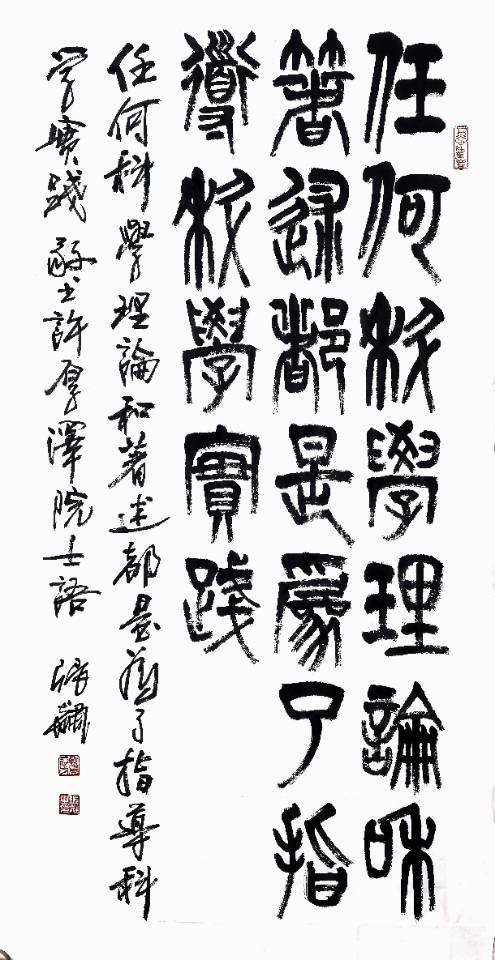 任何科學理論和
著述都是為了指
導科學實踐
任何科學理論和著述都是為了指導科
學實踐 敬書許厚澤院士語